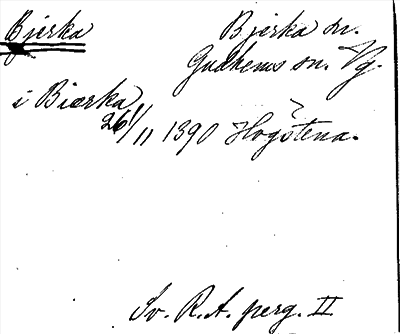 Bjerka
Bjerka sn.
Gudhems sn. Vg.
i Biærka
26/11 1390 Hogstena.
Sv. R. A. perg. II